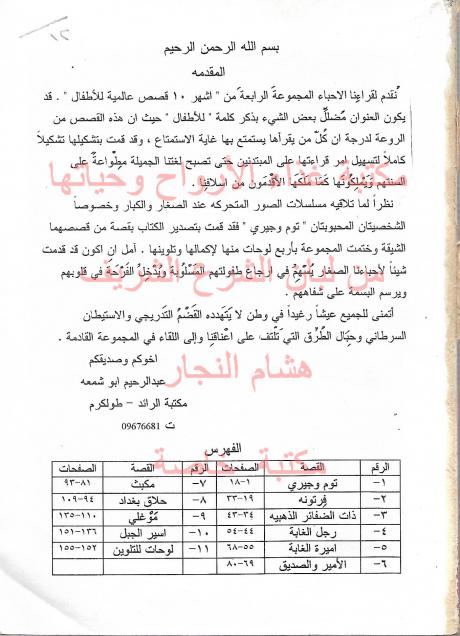 ١٢
بسم الله الرحمن الرحيم
المقدمه
نُقدم لقراءِنا الاحباء المجموعة الرابعة من " اشهر ١٠ قصص عالمية للأطفال " . قد
يكون العنوان مُضلّل بعض الشيء بذكر كلمة " للأطفال " حيث ان هذه القصص من
الروعة لدرجة ان كُلّ من يقرأها يستمتع بها غاية الاستمتاع ، وقد قمت بتشكيلها تشكيلاً
كاملاً لتسهيل امر قراءتها على المبتدئين حتى تصبح لغتنا الجميلة مِطْواعةً على
السنتهم وَيَمْلِكُونَها كَمَا مَلَكَها الأَقْدَمُونَ من اسلافنا .
مكتبة غذاء الأرواح وحياتها
نظراً لما تلاقيه مسلسلات الصور المتحركه عند الصغار والكبار وخصوصاً
الشخصيتان المحبوبتان " توم وجيري " فقد قمت بتصدير الكتاب بقصة من قصصهما
الشيقة وختمت المجموعة بأربع لوحات منها لإكمالها وتلوينها . آمل ان اكون قد قدمت
شيئاً لأحبائنا الصغار يُسْهِمُ في ارجاع طفولتهم المَسْلُوبَة وَيُدْخِلُ الفَرْحَةَ في قلوبهم
ويرسم البسمة على شفاههم .
من لبان الشرح الشريف
أتمنى للجميع عيشاً رغيداً في وطن لا يَتهدده القَضْمُ التَدريجي والاستيطان
السرطاني وحِبَال الطُرُق التي تَلتف على أعْناقِنا وإلى اللقاء في المجموعة القادمة .
اخوكم وصديقكم
هشام النجار
عبدالرحيم ابو شمعه
مكتبة الرائد – طولكرم
ت 09676681
مكتبة خاصة
الفهرس
الرقم القصة الصفحات الرقم القصة الصفحات
١- توم وجيري ١-١٨ ٧- مكبث ٨١-٩٣
٢- فرتونه ١٩-٣٣ ٨- حلاق بغداد ٩٤-١٠٩
٣- ذات الضفائر الذهبيه ٣٤-٤٣ ٩- مَوْغلي ١١٠-١٣٥
٤- رجل الغابة ٤٤-٥٤ ١٠- اسير الجبل ١٣٦-١٥١
٥- اميرة الغابة ٥٥-٦٨ ١١- لوحات للتلوين ١٥٢-١٥٥
٦- الأمير والصديق ٦٩-٨٠